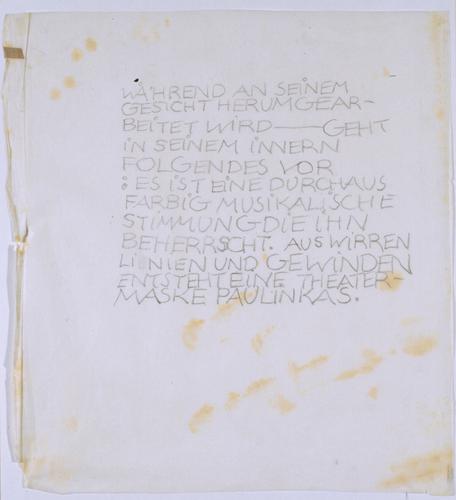 WÄHREND AN SEINEM
GESICHT HERUMGEAR-
BEITET WIRD — GEHT
IN SEINEM INNERN
FOLGENDES VOR
: ES IST EINE DURCHAUS
FARBIG MUSIKALISCHE
STIMMUNG DIE IHN
BEHERRSCHT. AUS WIRREN
LINIEN UND GEWINDEN
ENTSTEHT EINE THEATER-
MASKE PAULINKAS.